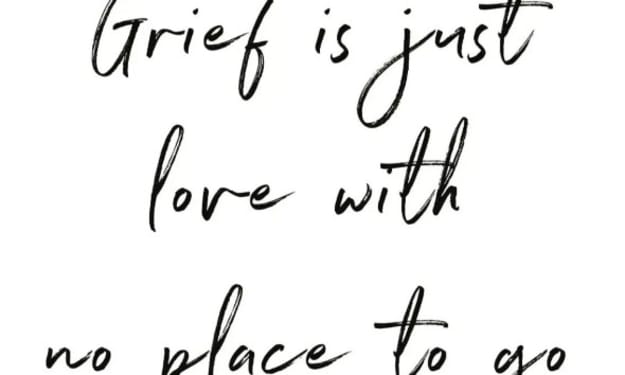 Grief is just
love with
no place to go